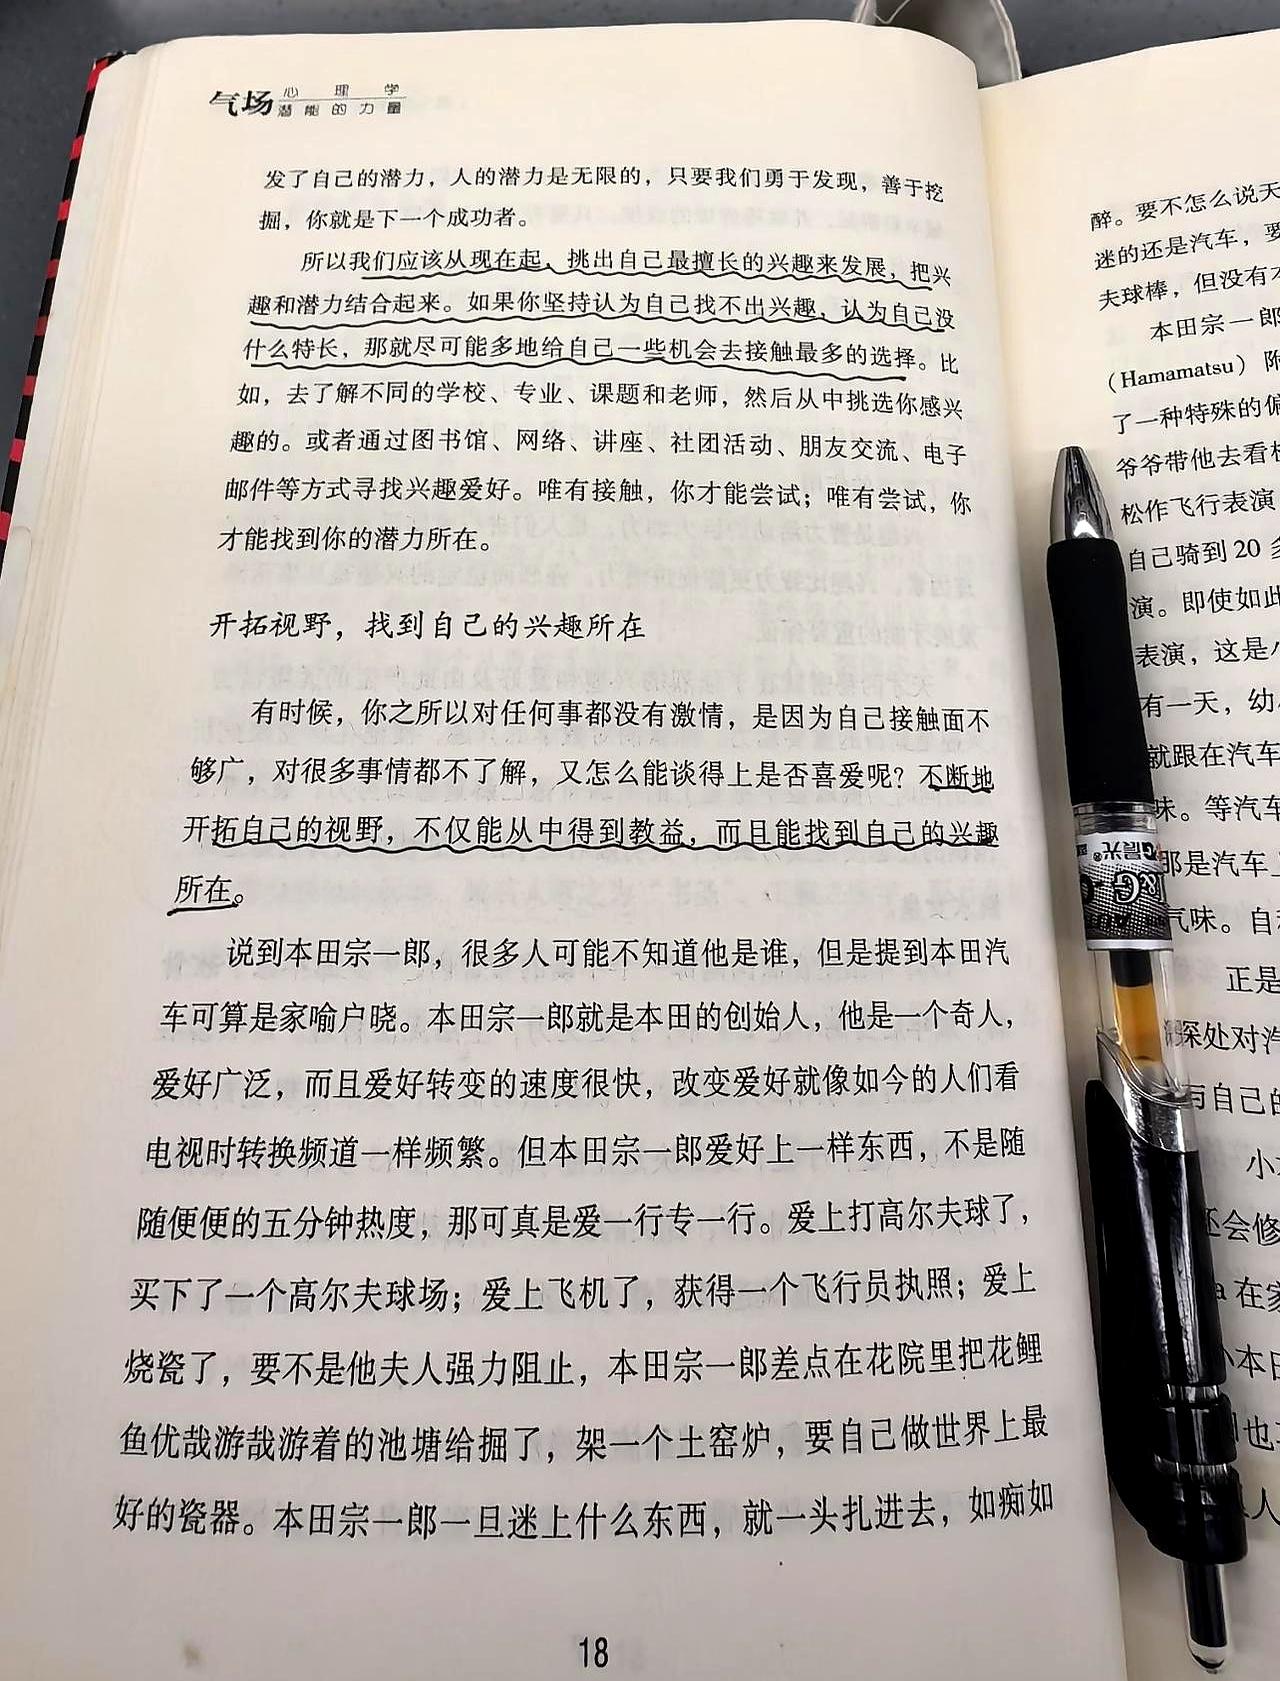 气场 心理学
潜能的力量
发了自己的潜力，人的潜力是无限的，只要我们勇于发现，善于挖
掘，你就是下一个成功者。
所以我们应该从现在起，挑出自己最擅长的兴趣来发展，把兴
趣和潜力结合起来。如果你坚持认为自己找不出兴趣，认为自己没
什么特长，那就尽可能多地给自己一些机会去接触最多的选择。比
如，去了解不同的学校、专业、课题和老师，然后从中挑选你感兴
趣的。或者通过图书馆、网络、讲座、社团活动、朋友交流、电子
邮件等方式寻找兴趣爱好。唯有接触，你才能尝试；唯有尝试，你
才能找到你的潜力所在。
开拓视野，找到自己的兴趣所在
有时候，你之所以对任何事都没有激情，是因为自己接触面不
够广，对很多事情都不了解，又怎么能谈得上是否喜爱呢？不断地
开拓自己的视野，不仅能从中得到教益，而且能找到自己的兴趣
所在。
说到本田宗一郎，很多人可能不知道他是谁，但是提到本田汽
车可算是家喻户晓。本田宗一郎就是本田的创始人，他是一个奇人，
爱好广泛，而且爱好转变的速度很快，改变爱好就像如今的人们看
电视时转换频道一样频繁。但本田宗一郎爱好上一样东西，不是随
随便便的五分钟热度，那可真是爱一行专一行。爱上打高尔夫球了，
买下了一个高尔夫球场；爱上飞机了，获得一个飞行员执照；爱上
烧瓷了，要不是他夫人强力阻止，本田宗一郎差点在花院里把花鲤
鱼优哉游哉游着的池塘给掘了，架一个土窑炉，要自己做世界上最
好的瓷器。本田宗一郎一旦迷上什么东西，就一头扎进去，如痴如
18
醉。要不怎么说天
迷的还是汽车，要
夫球棒，但没有
本田宗一郎
（Hamamatsu）附
了一种特殊的偏
爷爷带他去看
松作飞行表演
自己骑到20多
演。即使如此
表演，这是
有一天，幼
就跟在汽车
味。等汽车
那是汽车上
气味。自
正是
深处对汽
与自己的
小
还会修
a在家
小本田
也
人
晨光